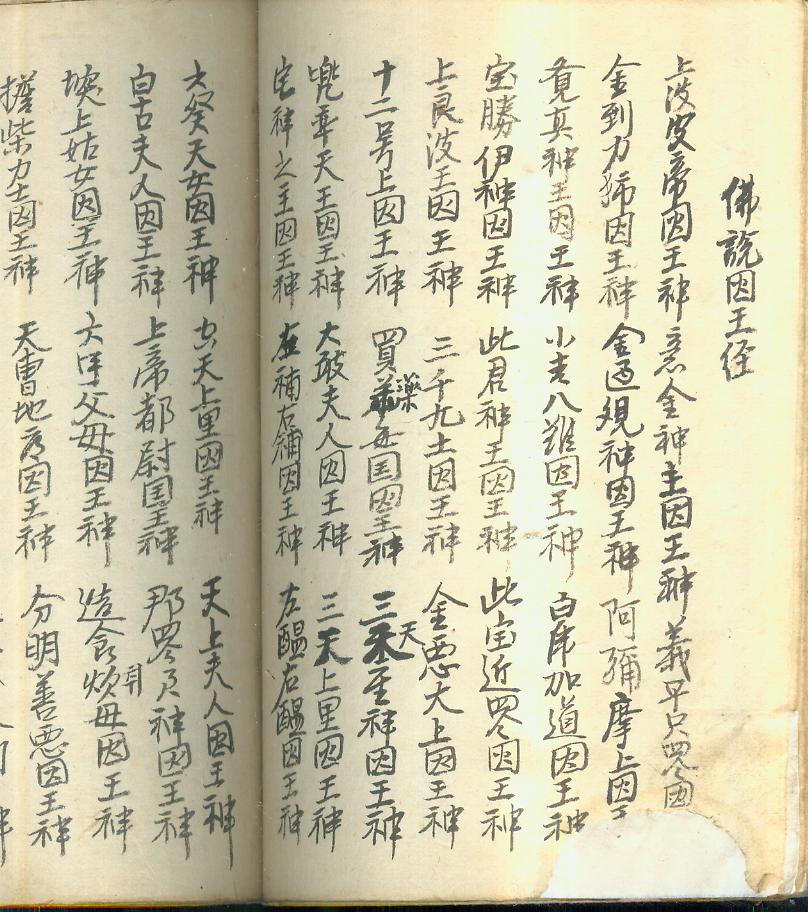 佛説因王经
上波皮帝因王神 意金神主因王神 義平只眾因
金到力 因王神 金過現神因王神 阿彌摩上因王
竟真神王因王神 小吉八難因王神 白席加道因王神
宝勝伊神因王神 此君神王因王神 此宝近眾因王神
上良波王因王神 三千九土因王神 金悪大上因王神
十二号上因王神 買藥 国因王神 三天 神因王神
兜率天王因王神 大敢夫人因王神 三天上里因王神
宅神之主因王神 在補右補因王神 左醖右醖因王神
大癸天女因王神 古天上里因王神 天上夫人因王神
白古夫人因王神 上帝都尉国王神 那眾 神因王神
上姑女因王神 六甲父母因王神 造食 母因王神
擔柴力士因王神 天曹地府因王神 分明善悪因王神